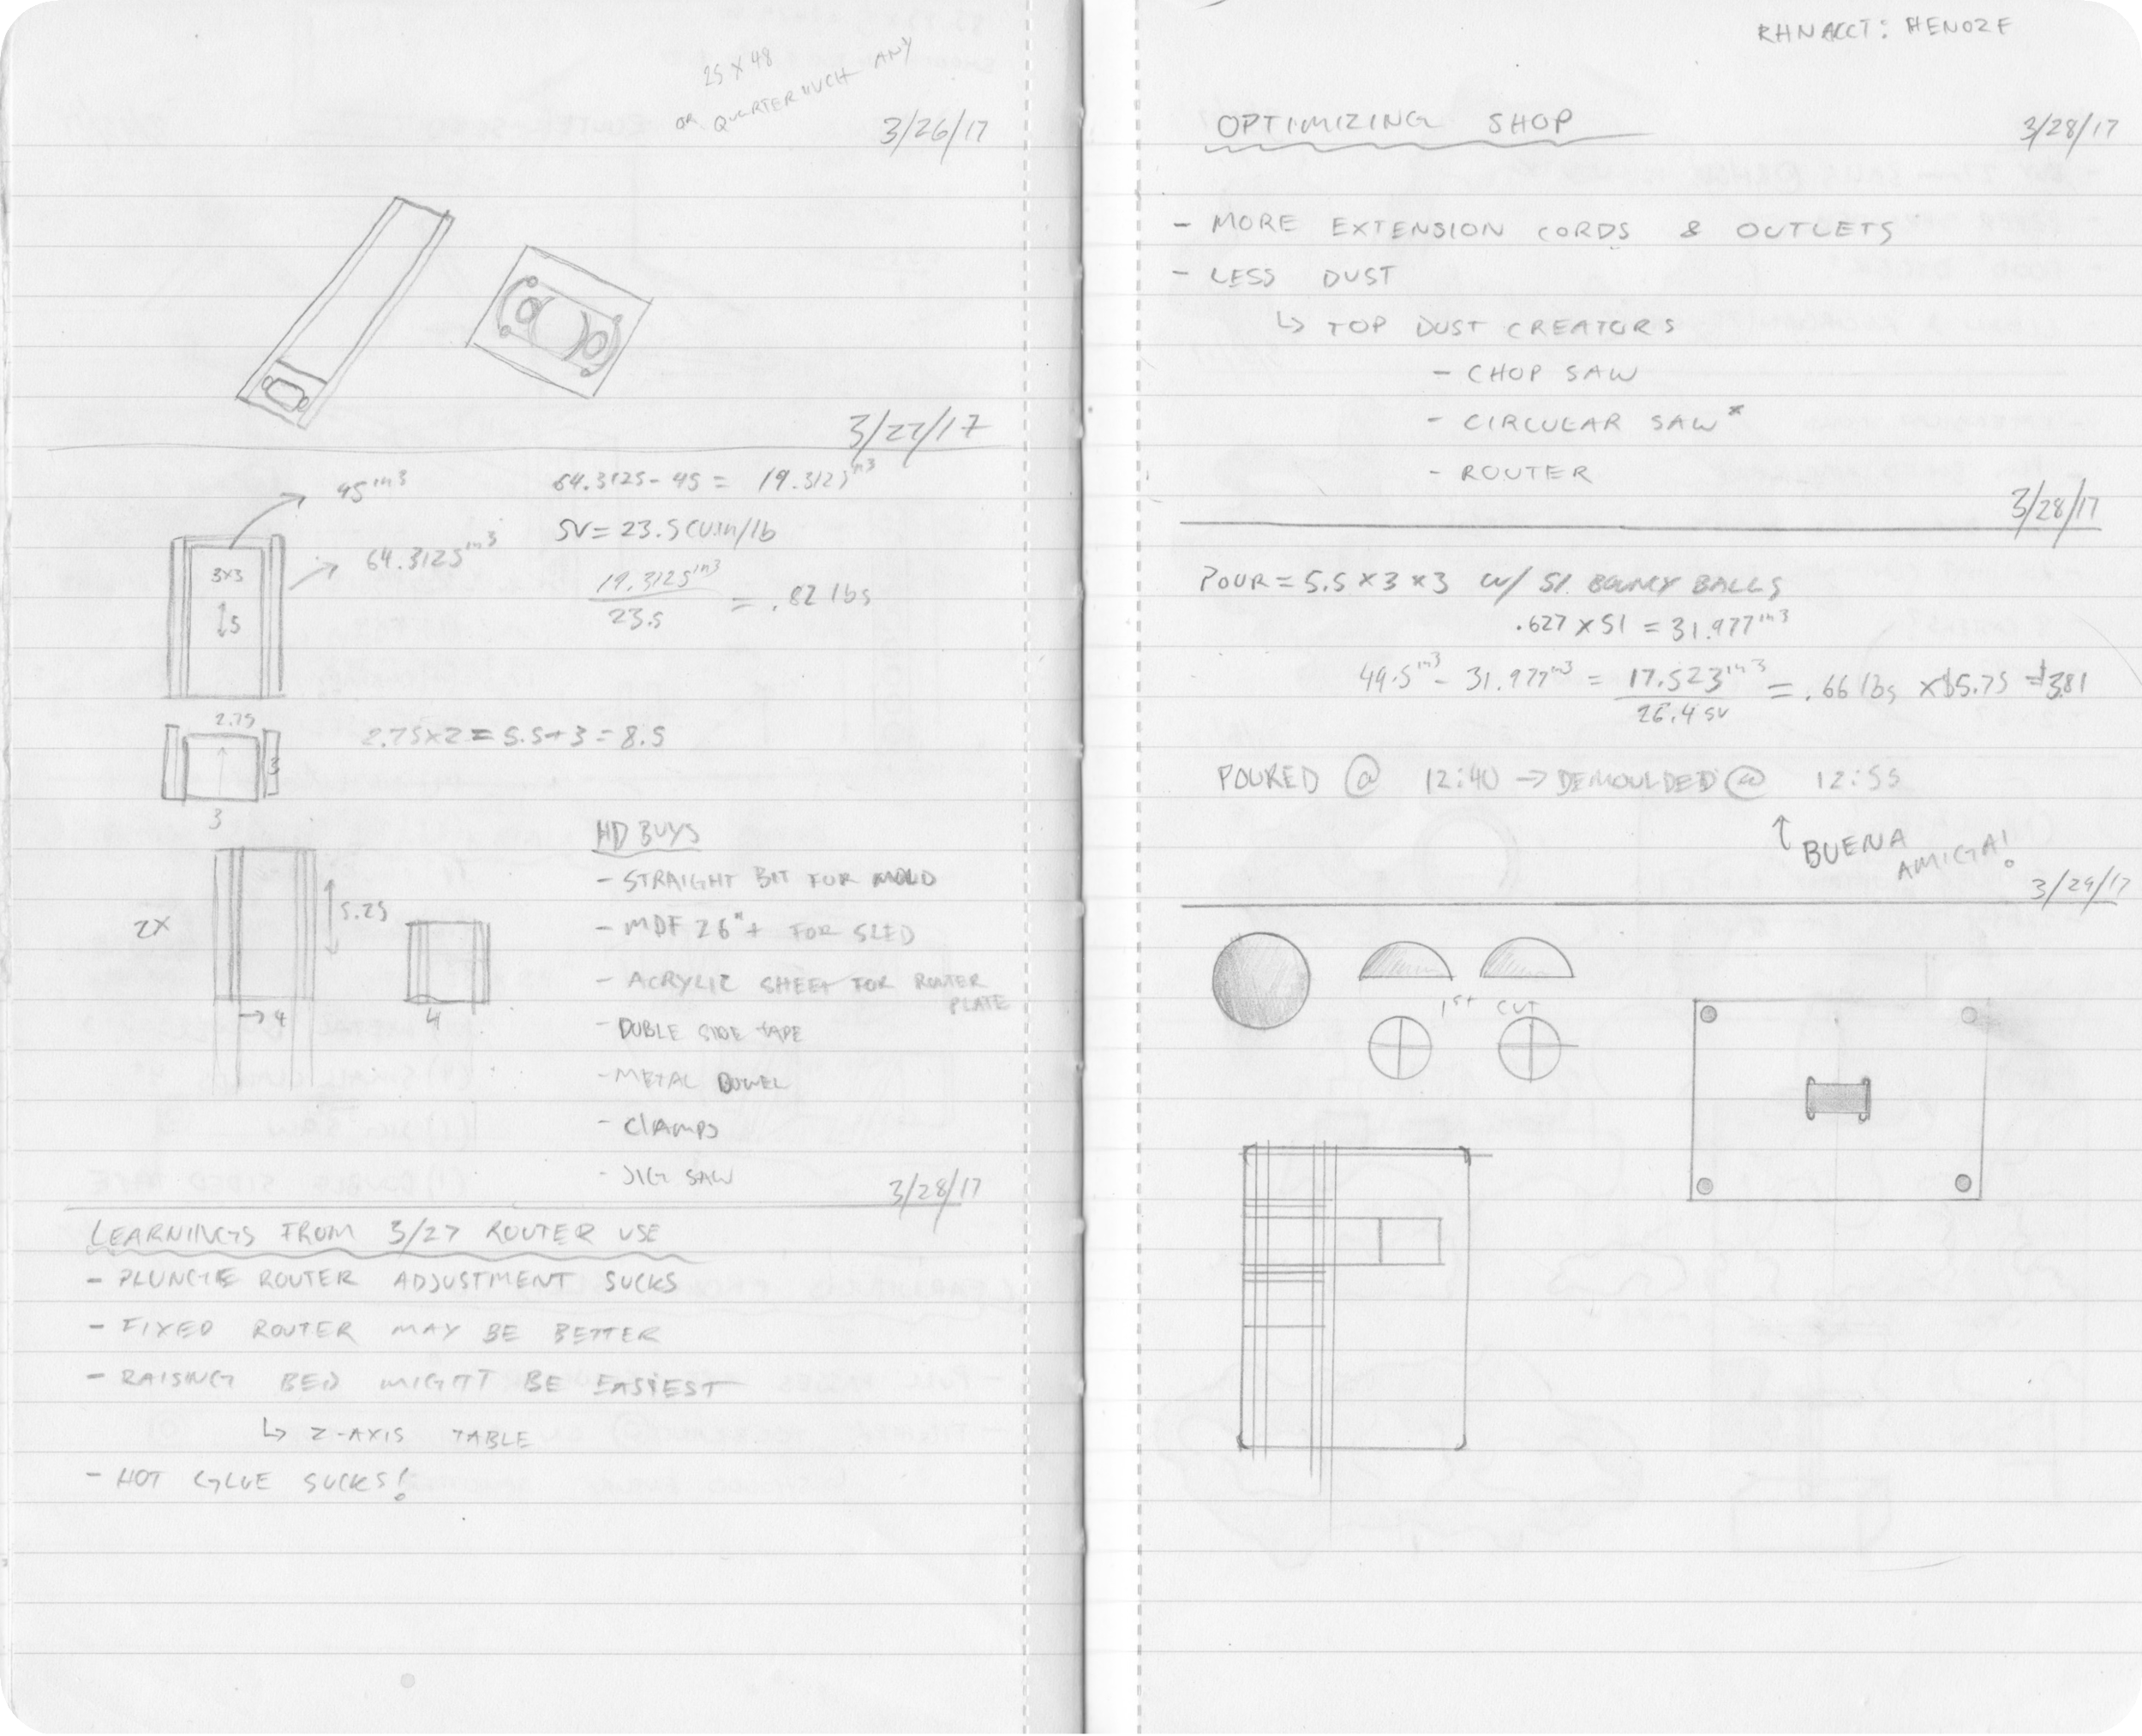 25 X 48
OR QUARTER INCH ANY
3/26/17
3/27/17
45 in3
64.3125 - 45 = 19.3125 in3
SV = 23.5 CU.in/lb
64.3125 in3
3x3
5
19.3125 in3
23.5
= .82 lbs
2.75
2.75x2 = 5.5+3 = 8.5
3
3
HD BUYS
- STRAIGHT BIT FOR MOLD
2X
5.25
- MDF 26"+ FOR SLED
- ACRYLIC SHEET FOR ROUTER
PLATE
→ 4
4
- DUBLE SIDE TAPE
- METAL DOWEL
- ClAMPS
- JIG SAW
3/28/17
LEARNINGS FROM 3/27 ROUTER USE
- PLUNGE ROUTER ADJUSTMENT SUCKS
- FIXED ROUTER MAY BE BETTER
- RAISING BED MIGHT BE EASIEST
↳ Z-AXIS TABLE
- HOT GLUE SUCKS!
RHN ACCT: HENOZF
OPTIMIZING SHOP
3/28/17
- MORE EXTENSION CORDS & OUTLETS
- LESS DUST
↳ TOP DUST CREATORS
- CHOP SAW
- CIRCULAR SAW*
- ROUTER
3/28/17
POUR = 5.5 x 3 x 3 W/ 51 BOUNCY BALLS
.627 x 51 = 31.977 in3
49.5 in3 - 31.977 in3 = 17.523 in3 = .66 lbs x $5.75 = $3.81
26.4 SV
POURED @ 12:40 → DEMOULDED @ 12:55
↑ BUENA
AMIGA!
3/29/17
1st CUT